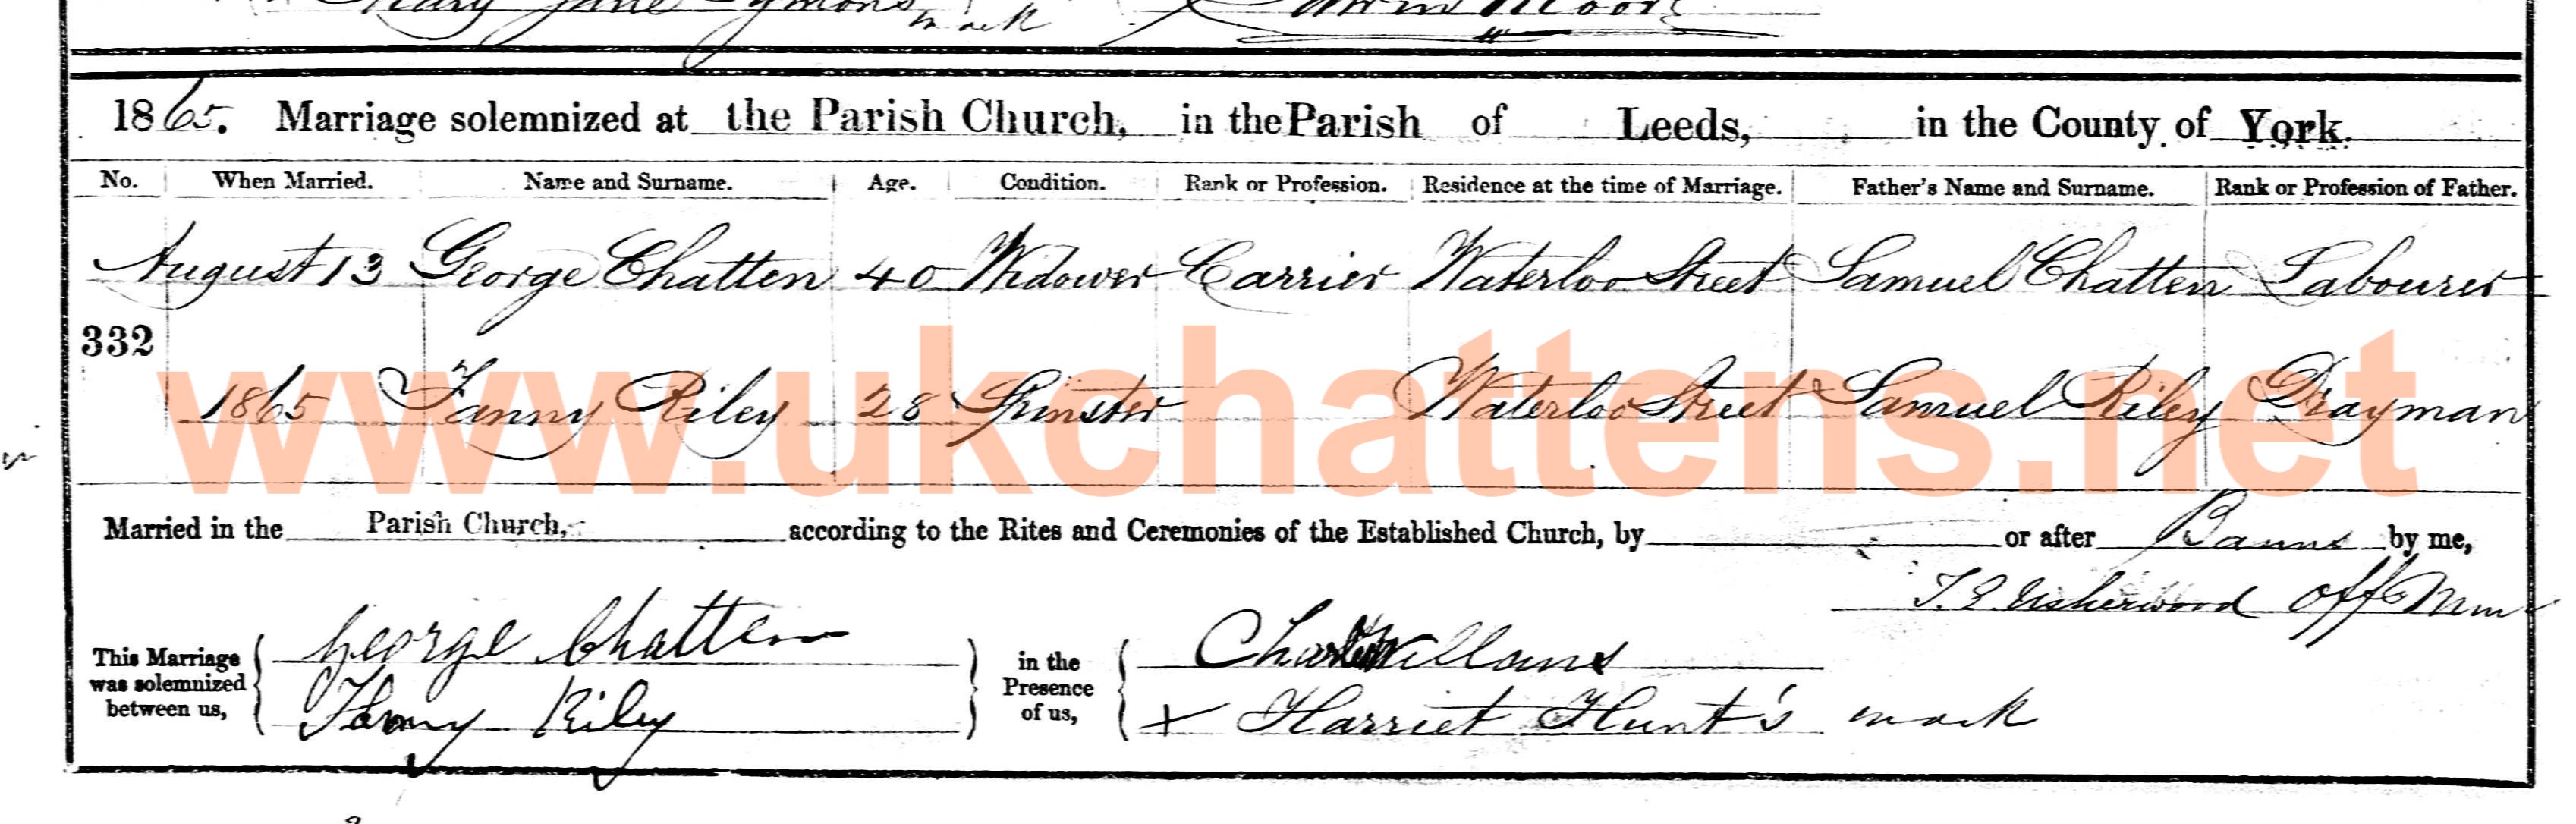 Mary Jane Symons mark Edwin Moore
1865. Marriage solemnized at the Parish Church, in the Parish of Leeds, in the County of York.
No. When Married. Name and Surname. Age. Condition. Rank or Profession. Residence at the time of Marriage. Father's Name and Surname. Rank or Profession of Father.
August 13 George Chatten 40 Widower Carrier Waterloo Street Samuel Chatten Labourer
332
www.ukchattens.net
1865 Fanny Riley 28 Spinster Waterloo Street Samuel Riley Drayman
Married in the Parish Church, according to the Rites and Ceremonies of the Established Church, by or after Banns by me,
T. E. Usherwood Off Min
This Marriage was solemnized between us,
George Chatten
Fanny Riley
in the Presence of us,
Willans
x Harriet Hunt's mark